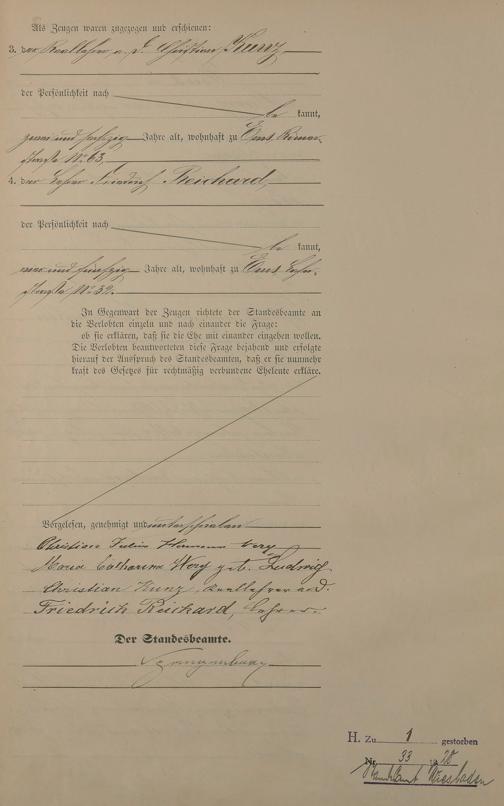 Als Zeugen waren zugezogen und erschienen:
3. der Reallehrer a. D. Christian Kunz
der Persönlichkeit nach
be kannt,
zwei und sechzig Jahre alt, wohnhaft zu Ems Römer-
straße No. 63,
4. der Lehrer Friedrich Reichard,
der Persönlichkeit nach
be kannt,
und fünfzig Jahre alt, wohnhaft zu Ems Lahn-
straße No. 32.
In Gegenwart der Zeugen richtete der Standesbeamte an
die Verlobten einzeln und nach einander die Frage:
ob sie erklären, daß sie die Ehe mit einander eingehen wollen.
Die Verlobten beantworteten diese Frage bejahend und erfolgte
hierauf der Ausspruch des Standesbeamten, daß er sie nunmehr
kraft des Gesetzes für rechtmäßig verbundene Eheleute erkläre.
Vorgelesen, genehmigt und unterschrieben
Christian Julius Hermann Wery
Maria Catharina Wery geb. Ludwig
Christian Kunz, Reallehrer a. D.
Friedrich Reichard, Lehrer.
Der Standesbeamte.
H. Zu 1 gestorben
Nr. 33
Standesamt Wiesbaden